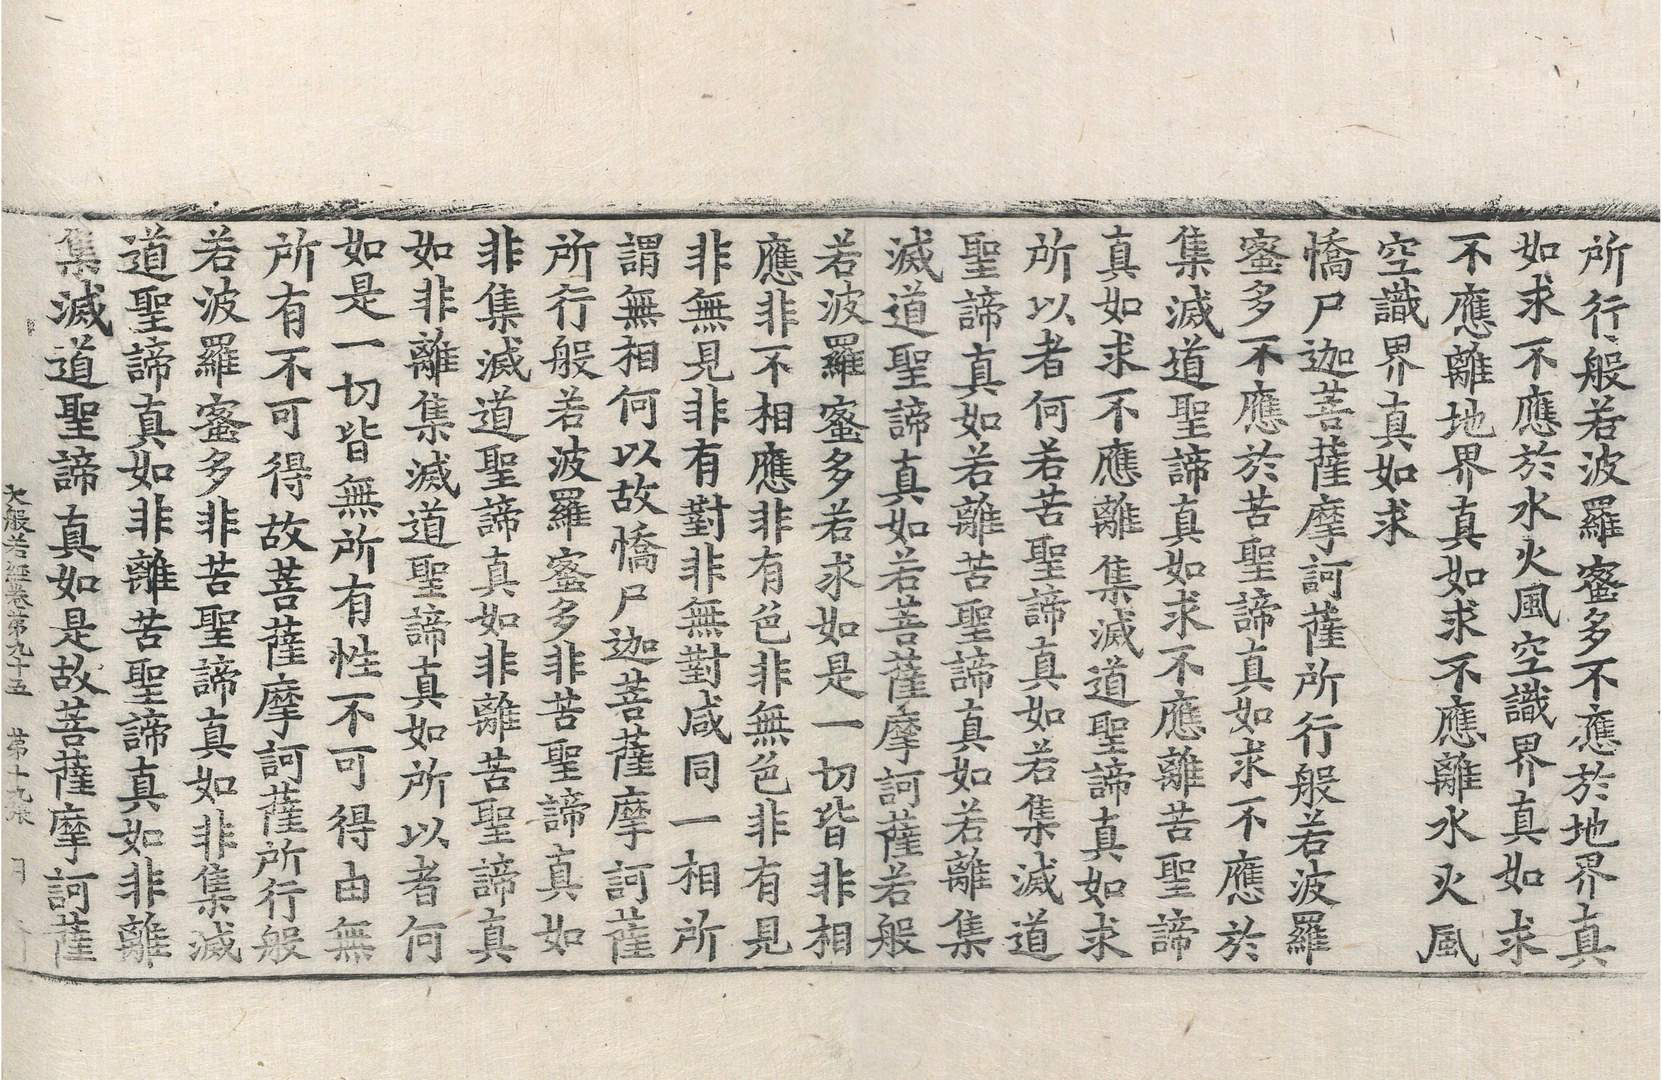 所行般若波羅蜜多不應於地界真
如求不應於水火風空識界真如求
不應離地界真如求不應離水火風
空識界真如求
憍尸迦菩薩摩訶薩所行般若波羅
蜜多不應於苦聖諦真如求不應於
集滅道聖諦真如求不應離苦聖諦
真如求不應離集滅道聖諦真如求
所以者何若苦聖諦真如若集滅道
聖諦真如若離苦聖諦真如若離集
滅道聖諦真如若菩薩摩訶薩若般
若波羅蜜多若求如是一切皆非相
應非不相應非有色非無色非有見
非無見非有對非無對咸同一相所
謂無相何以故憍尸迦菩薩摩訶薩
所行般若波羅蜜多非苦聖諦真如
非集滅道聖諦真如非離苦聖諦真
如非離集滅道聖諦真如所以者何
如是一切皆無所有性不可得由無
所有不可得故菩薩摩訶薩所行般
若波羅蜜多非苦聖諦真如非集滅
道聖諦真如非離苦聖諦真如非離
集滅道聖諦真如是故菩薩摩訶薩
大般若經卷第九十五 第十九張